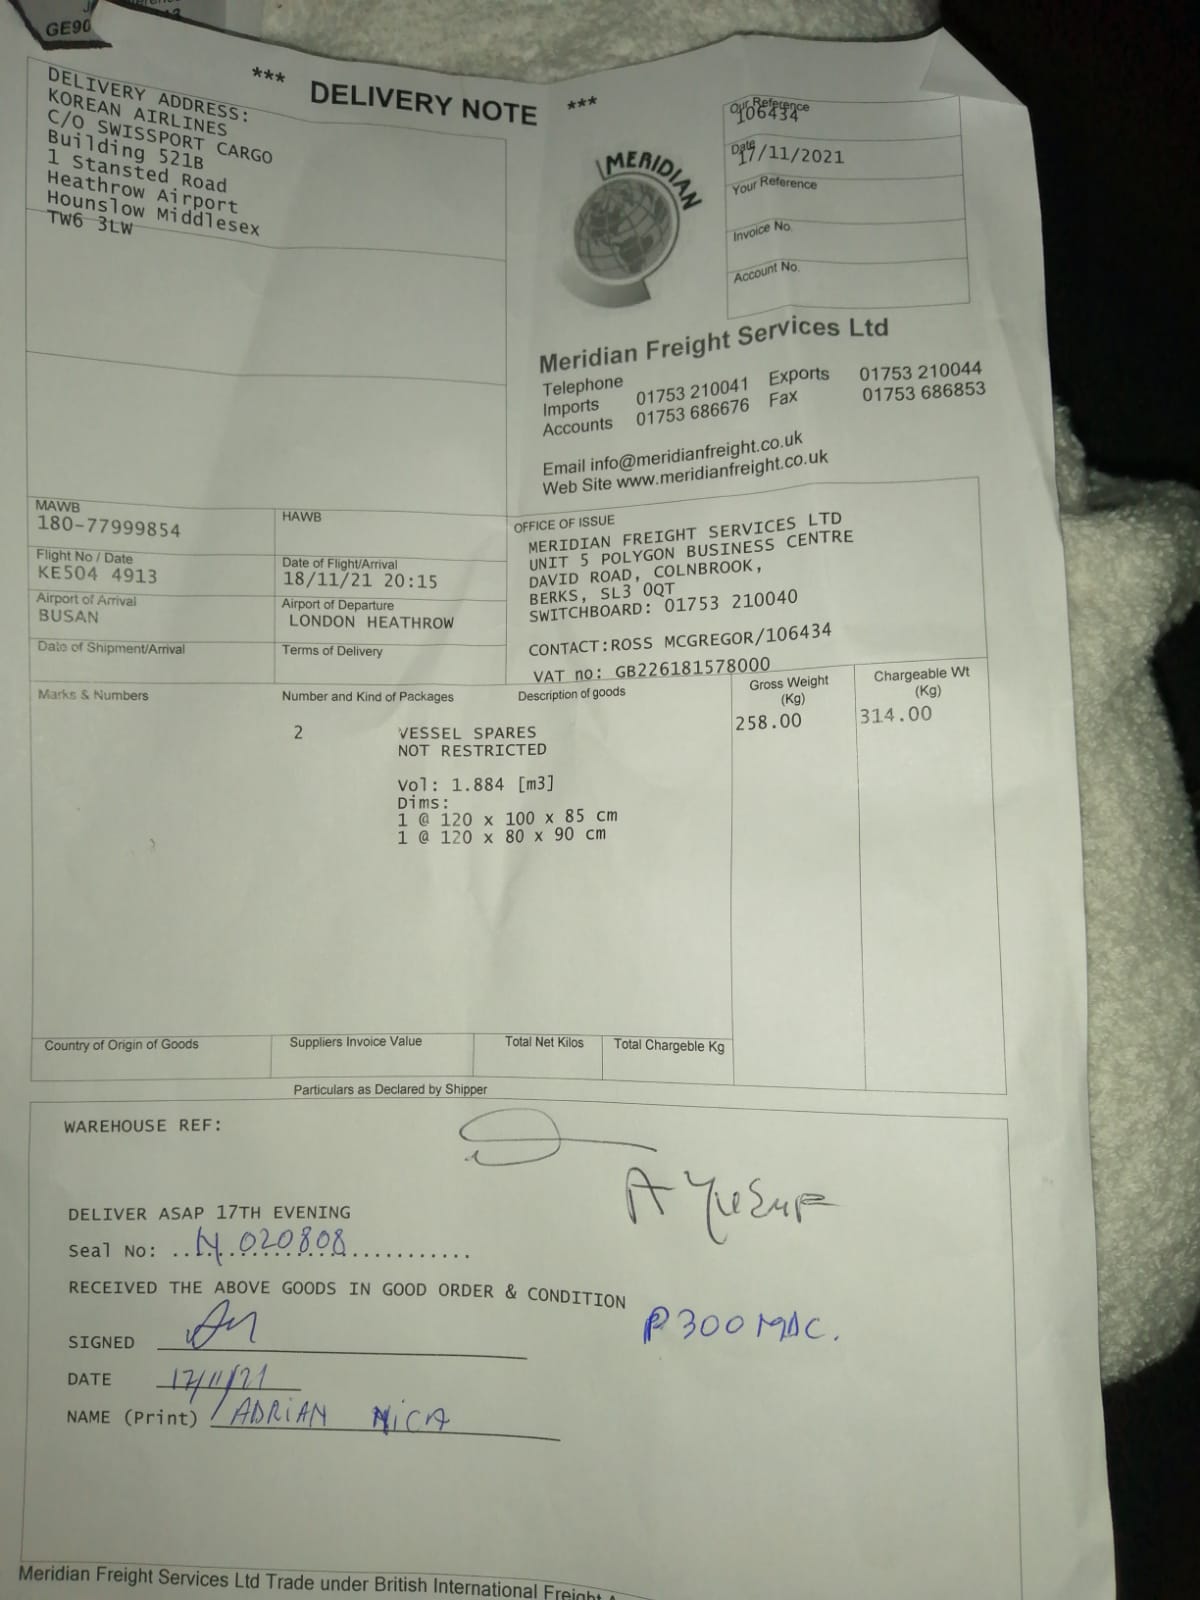 GE90
*** DELIVERY NOTE ***
DELIVERY ADDRESS:
KOREAN AIRLINES
C/O SWISSPORT CARGO
Building 521B
1 Stansted Road
Heathrow Airport
Hounslow Middlesex
TW6 3LW
MERIDIAN
Our Reference
106434
Date
17/11/2021
Your Reference
Invoice No.
Account No.
Meridian Freight Services Ltd
Telephone
Imports 01753 210041 Exports 01753 210044
Accounts 01753 686676 Fax 01753 686853
Email info@meridianfreight.co.uk
Web Site www.meridianfreight.co.uk
MAWB
180-77999854
HAWB
Flight No / Date
KE504 4913
Date of Flight/Arrival
18/11/21 20:15
Airport of Arrival
BUSAN
Airport of Departure
LONDON HEATHROW
Date of Shipment/Arrival
Terms of Delivery
OFFICE OF ISSUE
MERIDIAN FREIGHT SERVICES LTD
UNIT 5 POLYGON BUSINESS CENTRE
DAVID ROAD, COLNBROOK,
BERKS, SL3 0QT
SWITCHBOARD: 01753 210040
CONTACT:ROSS MCGREGOR/106434
VAT no: GB226181578000
Marks & Numbers Number and Kind of Packages Description of goods Gross Weight (Kg) Chargeable Wt (Kg)
2 VESSEL SPARES 258.00 314.00
NOT RESTRICTED
Vol: 1.884 [m3]
Dims:
1 @ 120 x 100 x 85 cm
1 @ 120 x 80 x 90 cm
Country of Origin of Goods Suppliers Invoice Value Total Net Kilos Total Chargeble Kg
Particulars as Declared by Shipper
WAREHOUSE REF:
DELIVER ASAP 17TH EVENING
Seal No: .. 020808
RECEIVED THE ABOVE GOODS IN GOOD ORDER & CONDITION
SIGNED
DATE 17/11/21
NAME (Print) ADRIAN NICA
Meridian Freight Services Ltd Trade under British International Freight